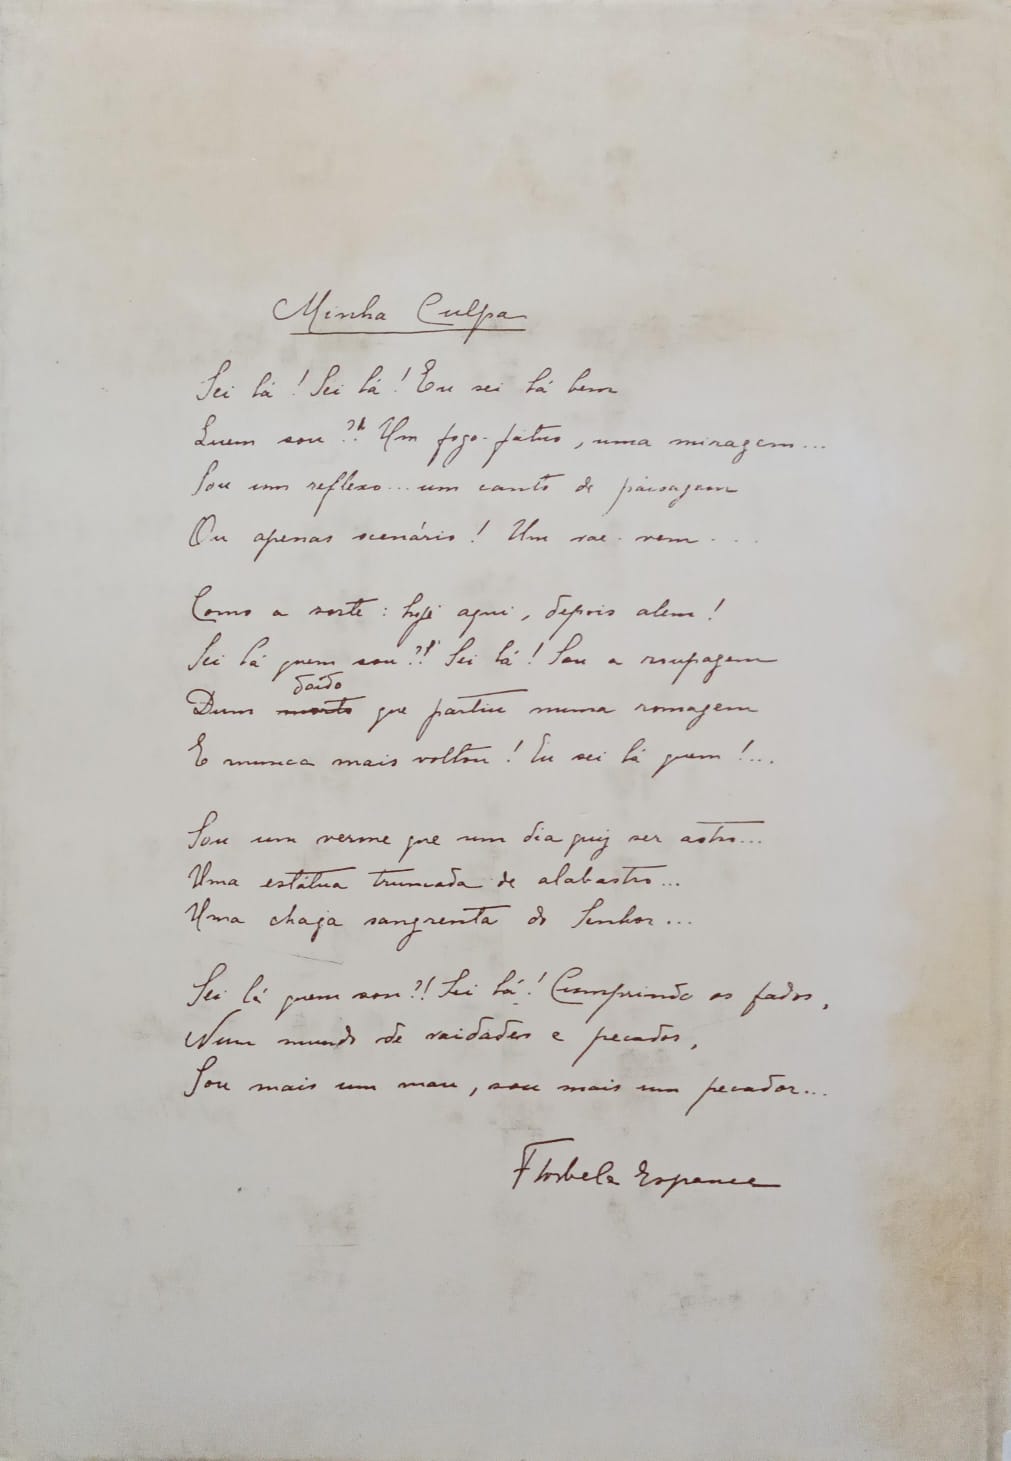 Minha Culpa
Sei lá! Sei lá! Eu sei lá bem
Quem sou?! Um fogo-fatuo, uma miragem...
Sou um reflexo... um canto de paisagem
Ou apenas scenário! Um vae-vem...
Como a sorte: hoje aqui, depois alem!
Sei lá quem sou?! Sei lá! Sou a roupagem
doido
Dum morto que partiu numa romagem
E nunca mais voltou! Eu sei lá quem!...
Sou um verme que um dia quiz ser astro...
Uma estátua truncada de alabastro...
Uma chaga sangrenta do Senhor...
Sei lá quem sou?! Sei lá! Cumprindo os fados,
Num mundo de vaidades e pecados,
Sou mais um mau, sou mais um pecador...
Florbela Espanca